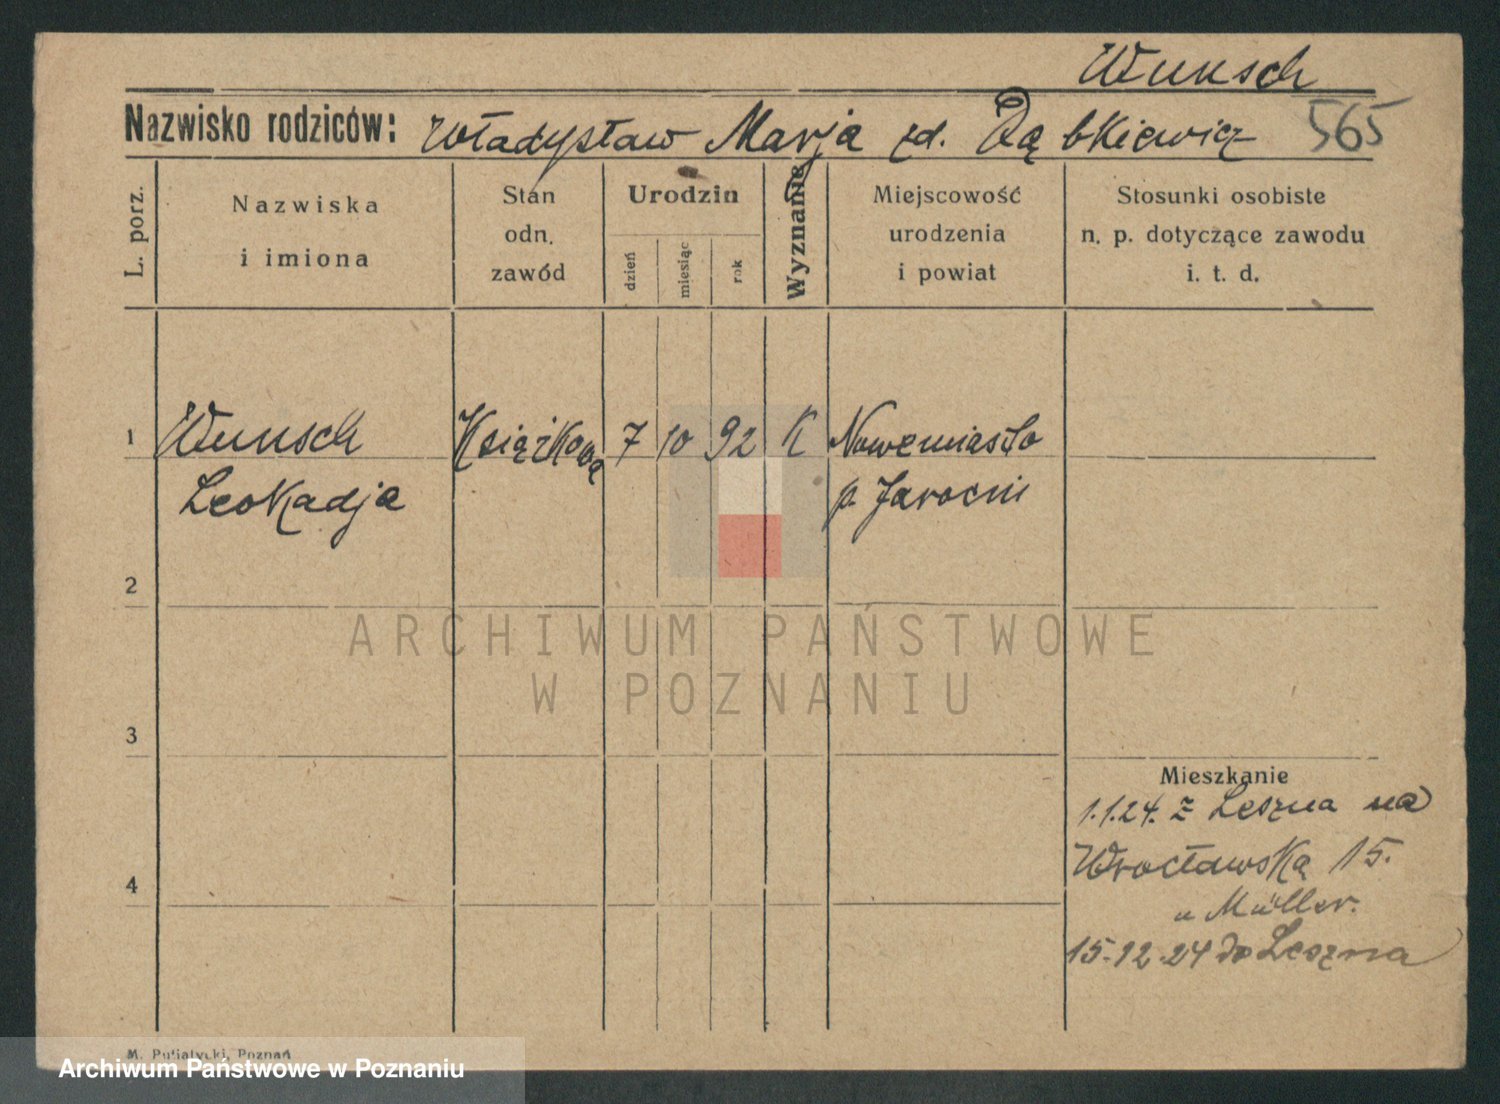 Wunsch
Nazwisko rodziców: Władysław Marja zd. Dąbkiewicz 565
L. porz.
Nazwiska
i imiona
Stan
odn.
zawód
Urodzin
dzień
miesiąc
rok
Wyznanie
Miejscowość
urodzenia
i powiat
Stosunki osobiste
n. p. dotyczące zawodu
i. t. d.
1 Wunsch Książkową 7 10 92 K Nowemiasto
Leokadja p. Jarocin
2
ARCHIWUM PAŃSTWOWE
W POZNANIU
3
Mieszkanie
1.1.24. z Leszna na
Wrocławską 15.
4
u Müller.
15.12.24 do Leszna
M. Putiatycki, Poznań
Archiwum Państwowe w Poznaniu